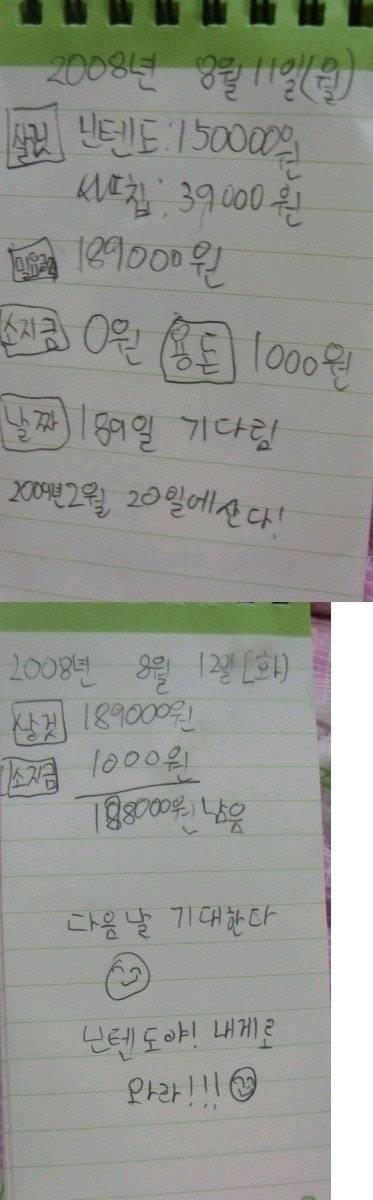 2008년 8월 11일(월)
살것 닌텐도:150000원
싸띠칩:39000원
필요금액 189000원
소지금 0원 용돈 1000원
날짜 189일 기다림
2009년2월 20일에산다!
2008년 8월 12일(화)
살것 189000원
소지금 1000원
188000원 남음
다음날 기대한다
닌텐도야! 내게로
와라!!!